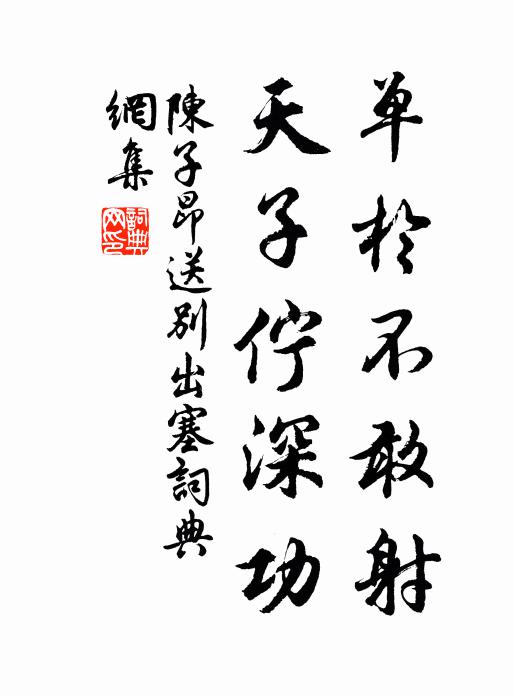 单於不敢射
天子佇深功
陳子昂送别出塞詞典
網集
詞典
网印